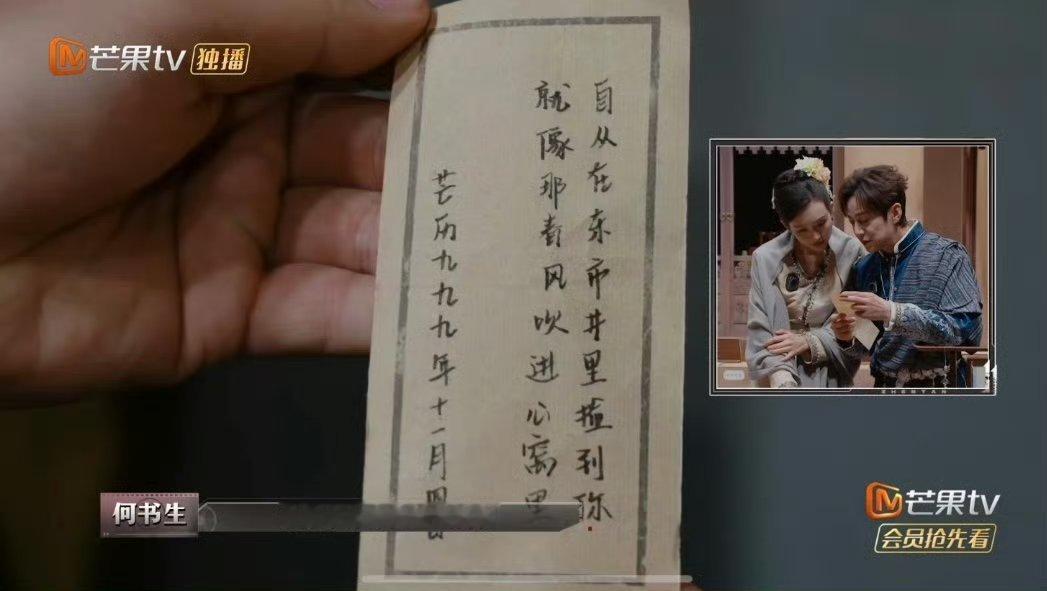 芒果tv 独播
自从在东市井里撞到你
就像那春风吹进心窝里
芒历九九九年十一月四日
ZHENYAN
何书生
芒果tv
会员抢先看